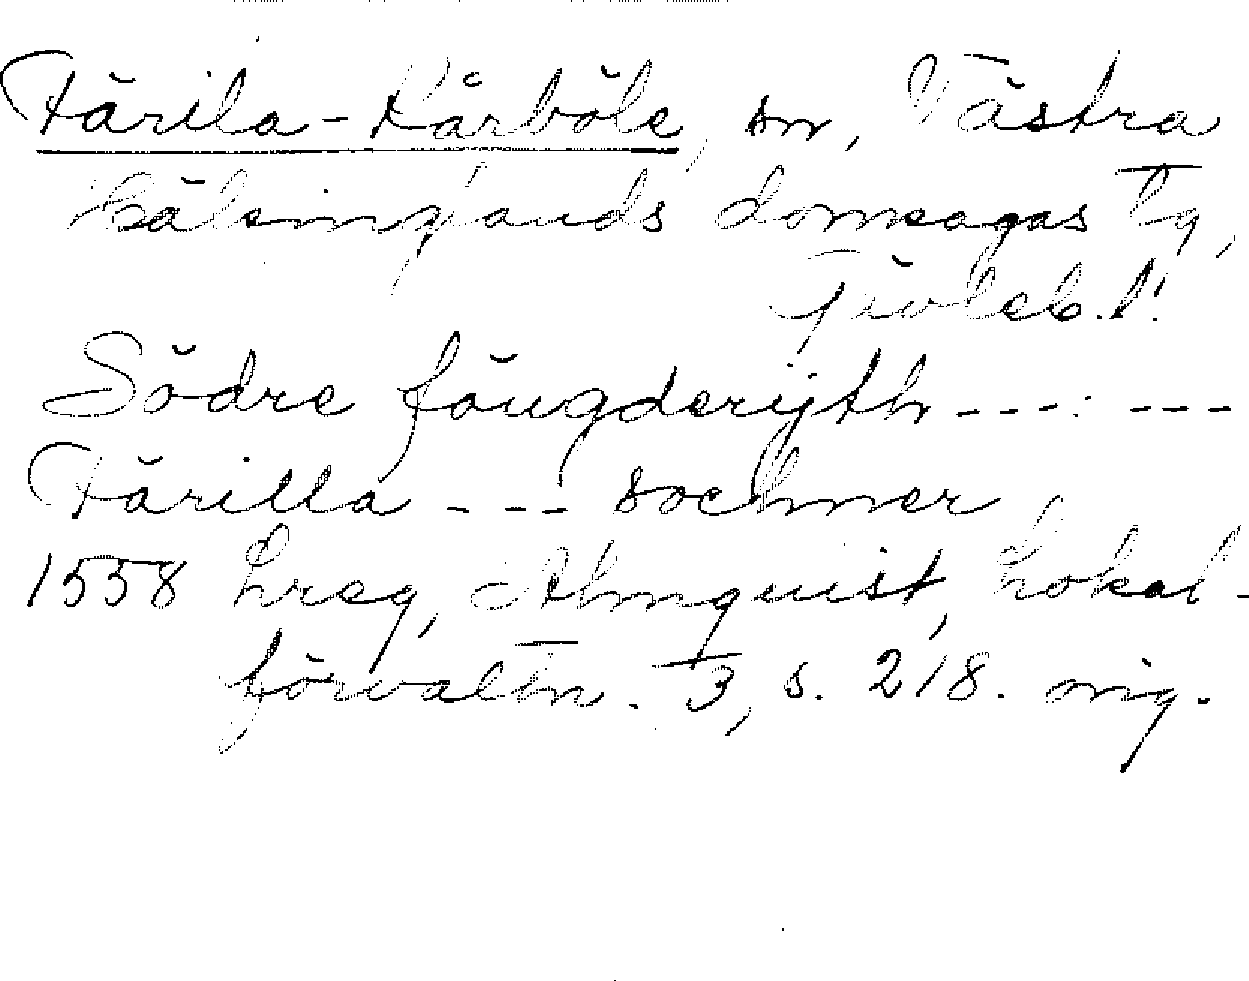 Färila-Kårböle, sn, Västra
hälsinglands domsagas tg,
Gävleb. l.
Södre föugderijth --- ---
Färilla --- sochner
1558 hreg, Almquist, Lokal-
förvaltn. 3, s. 218. orig.